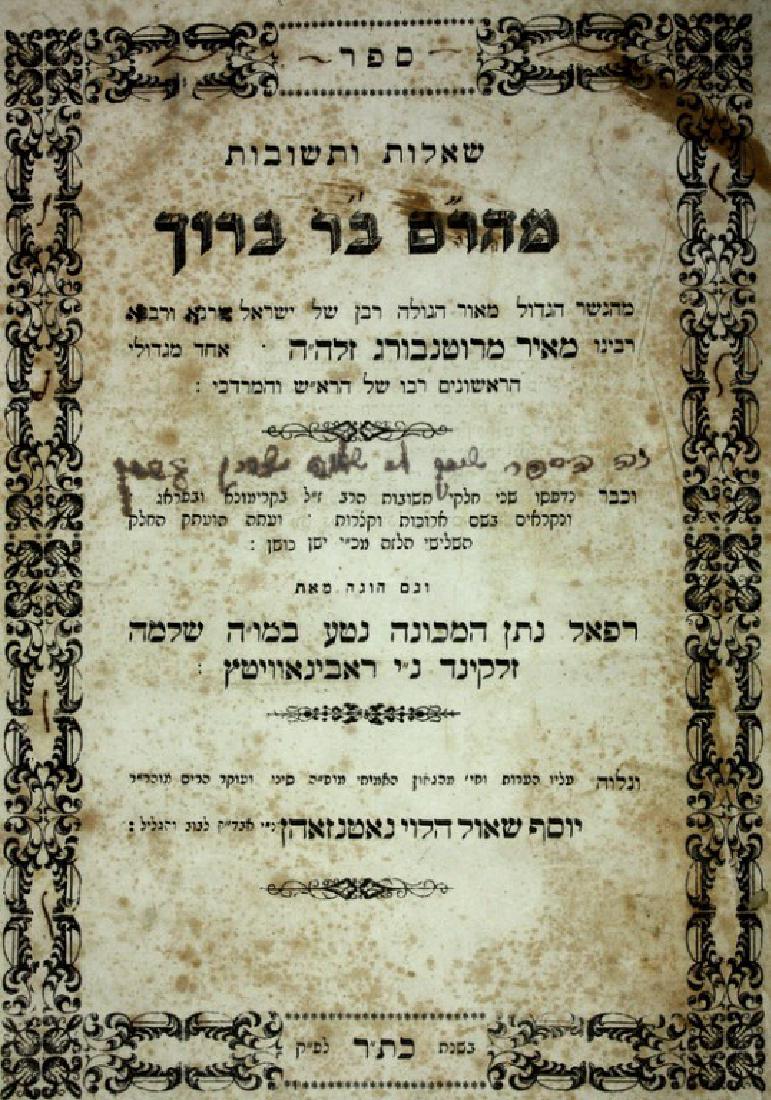 ספר
שאלות ותשובות
מהר״ם ב״ר ברוך
מהנשר הגדול מאור הגולה רבן של ישראל מרנא ורבנא
רבינו מאיר מרוטנבורג זלה״ה · אחד מגדולי
הראשונים רבו של הרא״ש והמרדכי :
זה הספר
וכבר נדפסו שני חלקי תשובות הרב ז״ל בקרימונא ובפראג ·
ונקראים בשם ארוכות וקצרות · ועתה הועתק החלק
השלישי הלזה מכ״י ישן נושן :
וגם הוגה מאת
רפאל נתן המכונה נטע במו״ה שלמה
זלקינד נ״י ראבינאוויטץ :
ונלוה עליו הערות וסי׳ מהגאון האמיתי סיני ועוקר הרים
יוסף שאול הלוי נאטנזאהן נ״י אבד״ק לבוב והגליל :
בשנת כת״ר לפ״ק